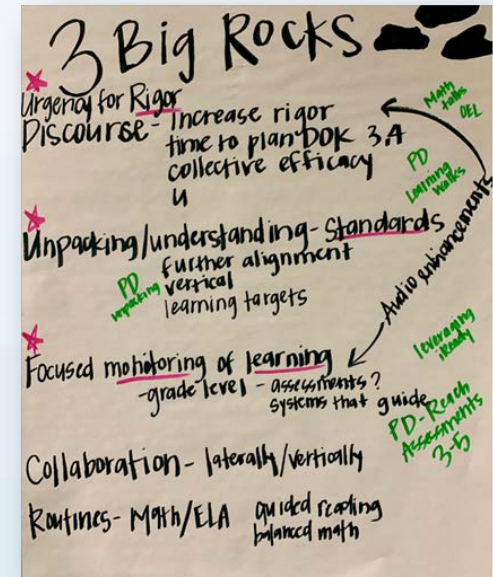 3 Big Rocks
Urgency for Rigor
Discourse - Increase rigor
time to plan DOK 3,4
collective efficacy
Math
talks
OEL
PD
Learning
Walks
Unpacking/understanding - Standards
further alignment
vertical
learning targets
PD
unpacking
Audio enhancements
Focused monitoring of learning
- grade level - assessments?
systems that guide
leveraging
iReady
PD - Reach
Assessments
3-5
Collaboration - laterally/vertically
Routines - Math/ELA guided reading
balanced math